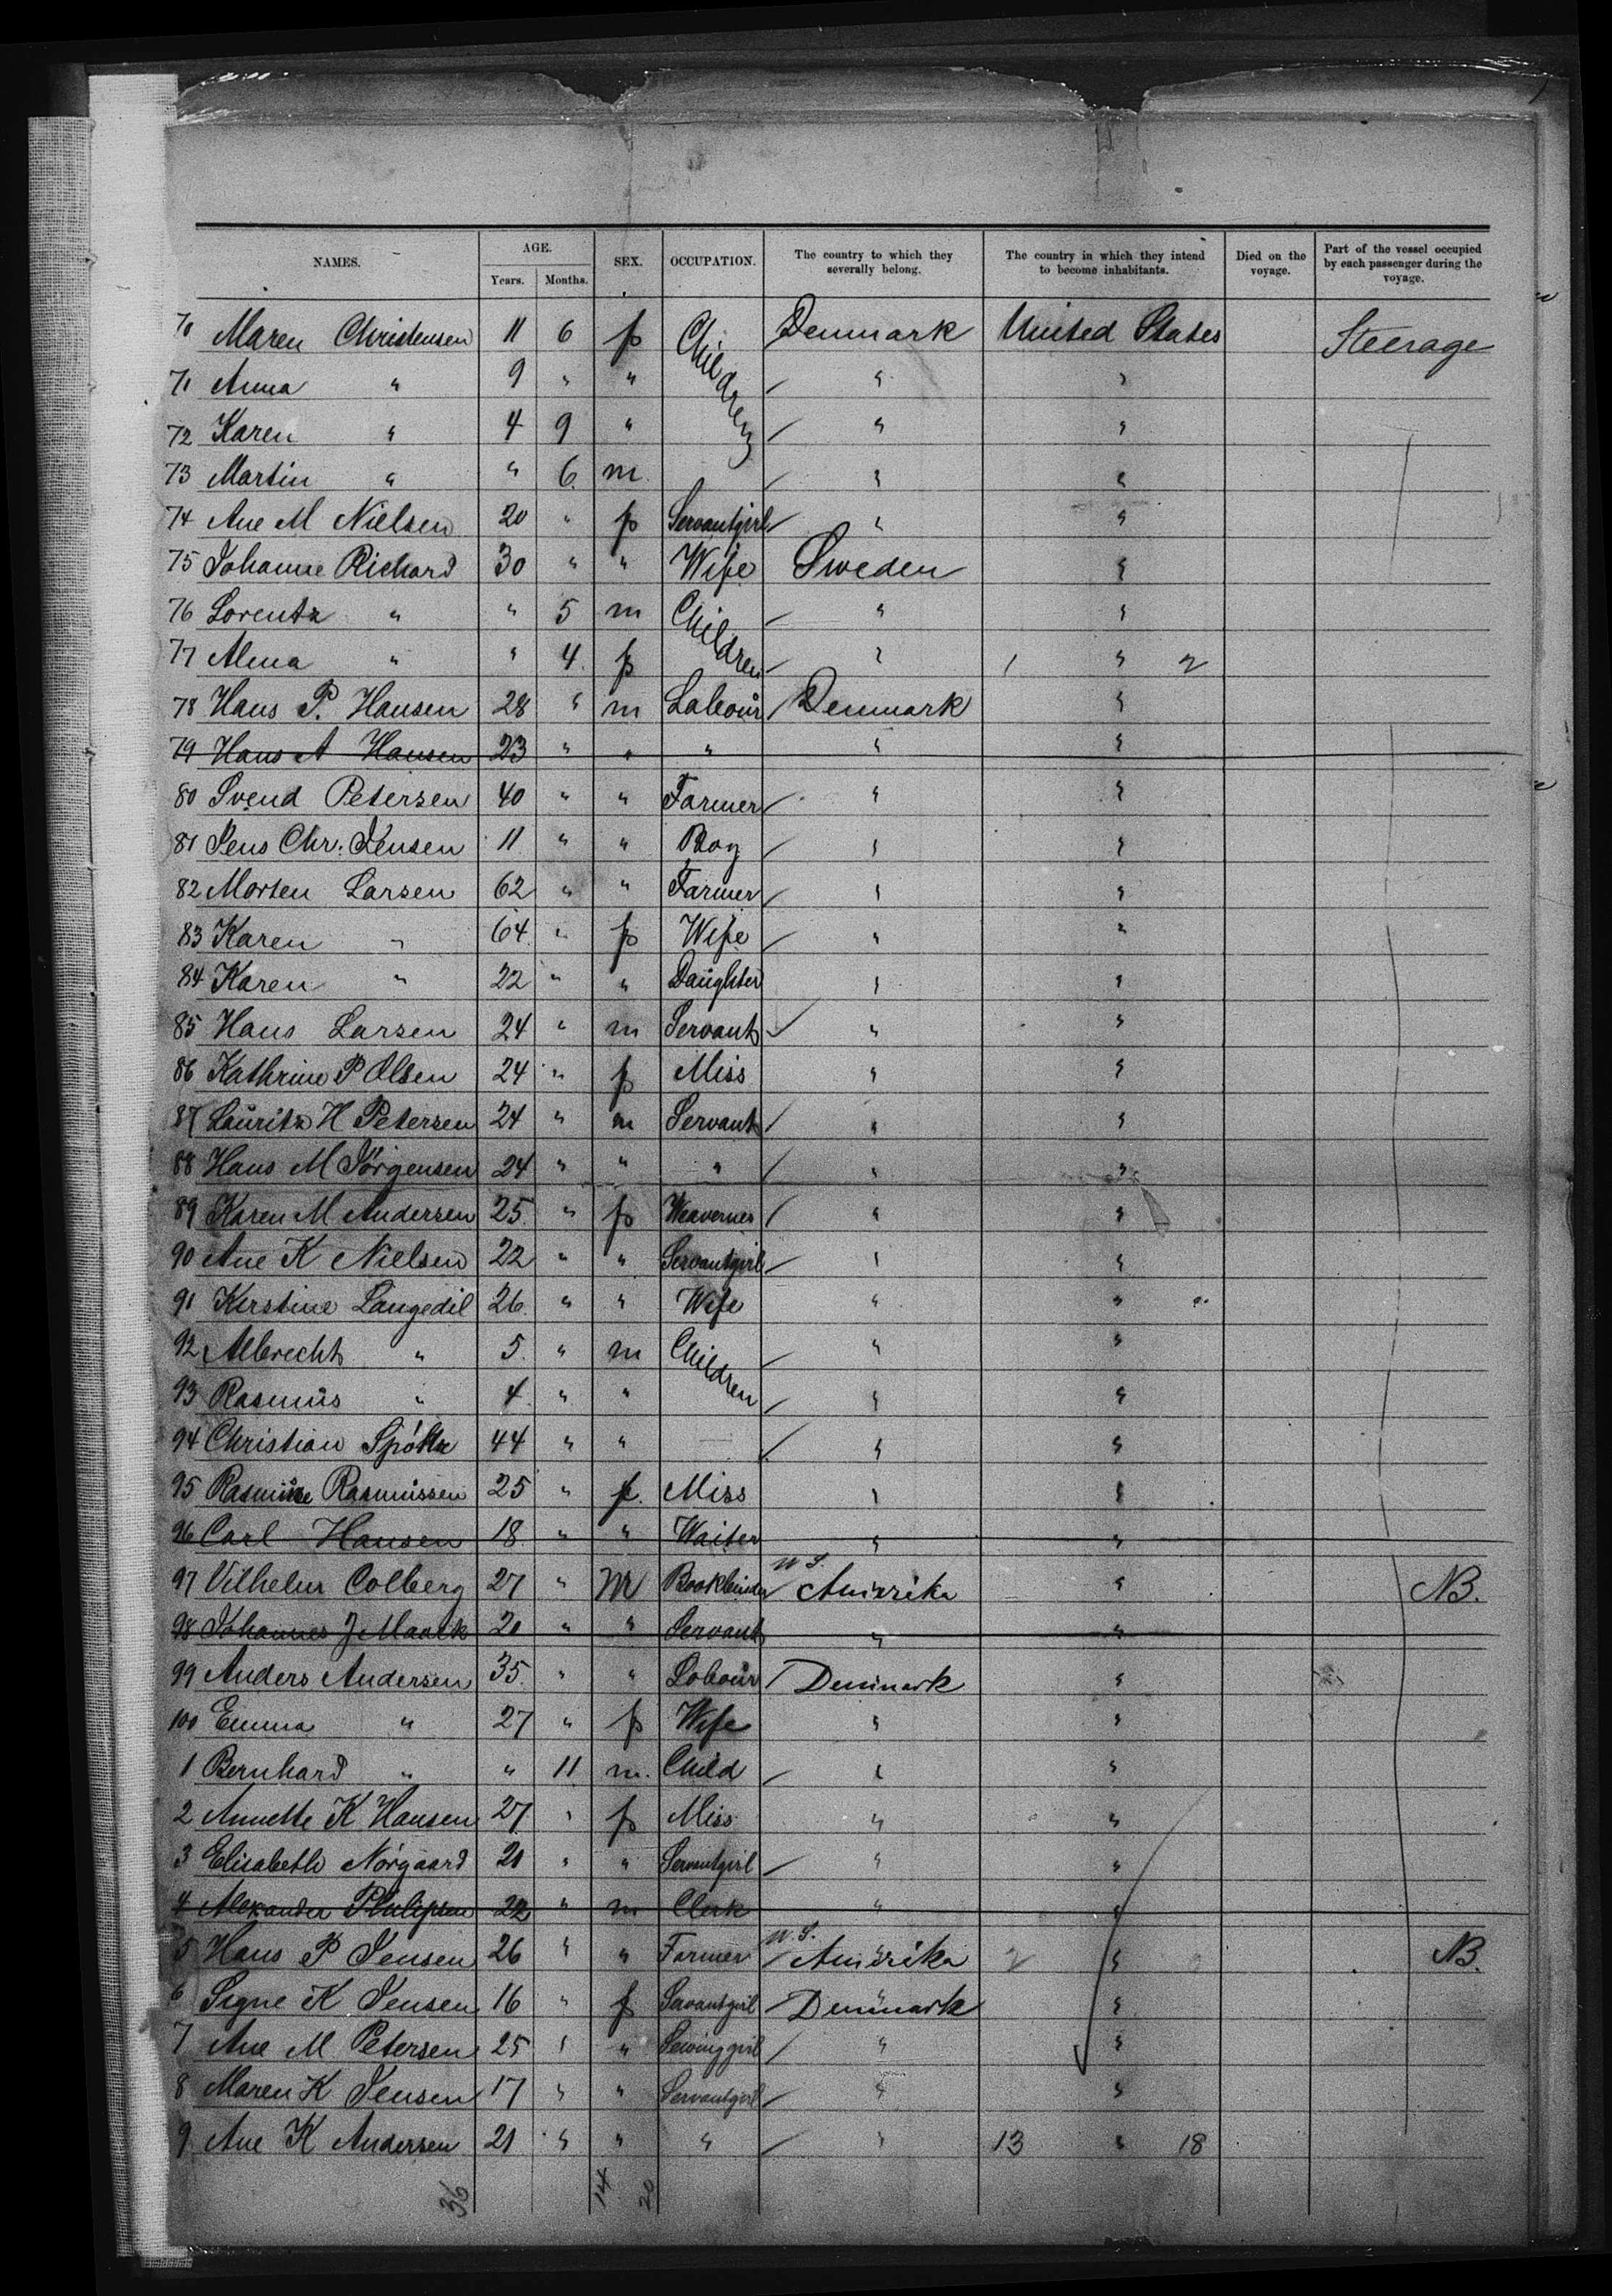 NAMES. AGE. SEX. OCCUPATION. The country to which they severally belong. The country in which they intend to become inhabitants. Died on the voyage. Part of the vessel occupied by each passenger during the voyage.
Years. Months.
70 Maren Christensen 11 6 f Children Denmark United States Steerage
71 Anna " 9 " " " "
72 Karen " 4 9 " " "
73 Martin " " 6 m " "
74 Ane M Nielsen 20 " f Servantgirl " "
75 Johanne Richard 30 " " Wife Sweden "
76 Lorentz " " 5 m Children " "
77 Alma " " 4 f " 1 " 2
78 Hans P. Hansen 28 " m Labour Denmark "
79 Hans A Hansen 23 " " " " "
80 Svend Petersen 40 " " Farmer " "
81 Jens Chr. Jensen 11 " " Boy " "
82 Morten Larsen 62 " " Farmer " "
83 Karen " 64 " f Wife " "
84 Karen " 22 " " Daughter " "
85 Hans Larsen 24 " m Servant " "
86 Kathrine P Olsen 24 " f Miss " "
87 Lauritz H Petersen 24 " m Servant " "
88 Hans M Jörgensen 24 " " " " "
89 Karen M Andersen 25 " f Weavernes " "
90 Ane K Nielsen 22 " " Servantgirl " "
91 Kirstine Langedil 26 " " Wife " "
92 Albrecht " 5 " m Children " "
93 Rasmus " 4 " " " "
94 Christian 44 " " — " "
95 Rasmine Rasmussen 25 " f. Miss " "
96 Carl Hansen 18 " " Waiter " "
97 Vilhelm Colberg 27 " M Bookbinder Amerika " NB.
98 Johannes J Maack 20 " " Servant " "
99 Anders Andersen 35 " " Labour Denmark "
100 Emma " 27 " f Wife " "
1 Bernhard " " 11 m. Child " "
2 Annette K Hansen 27 " f Miss " "
3 Elisabeth Nörgaard 21 " " Servantgirl " "
4 Alexander Philipsen 22 " m Clerk " "
5 Hans P Jensen 26 " " Farmer Amerika 2 " NB.
6 Signe K Jensen 16 " f Servantgirl Denmark "
7 Ane M Petersen 25 " " Sewinggirl " "
8 Maren K Jensen 17 " " Servantgirl " "
9 Ane K Andersen 21 " " " " 13 " 18
36 14 20